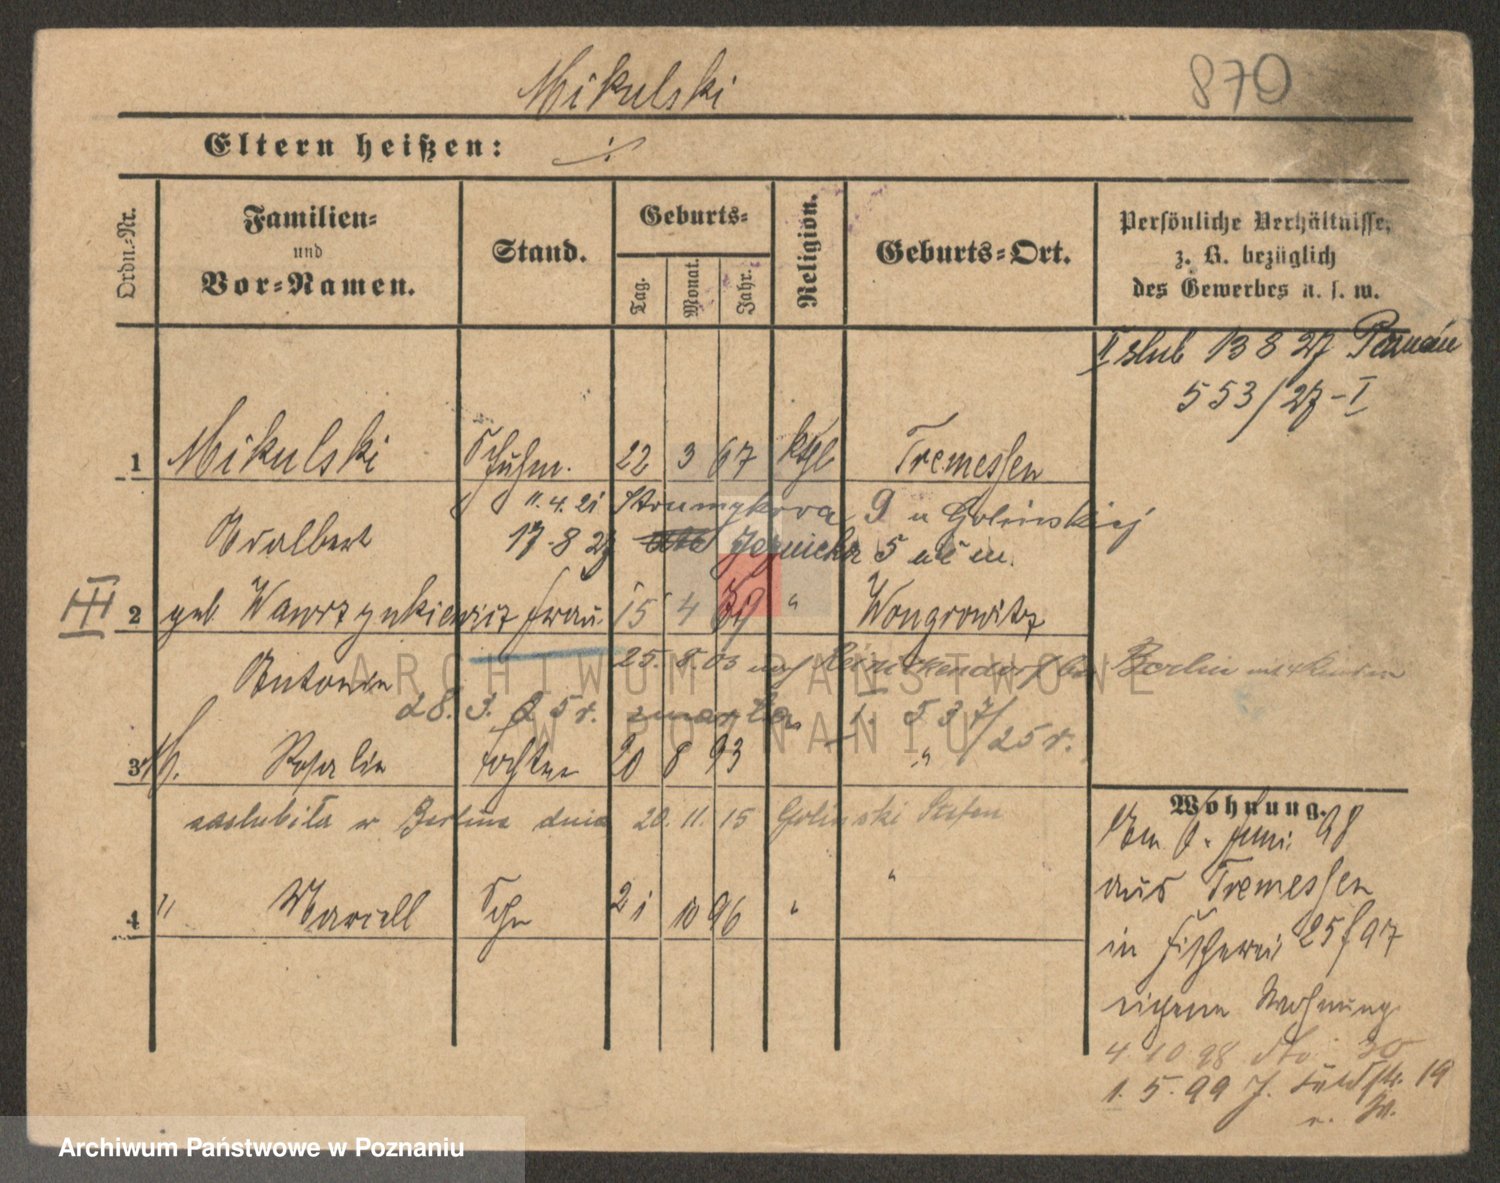 Mikulski
870
Eltern heißen: ·/·
Ordn.-Nr.
Familien- und Vor-Namen.
Stand.
Geburts-
Tag.
Monat.
Jahr.
Religion.
Geburts-Ort.
Persönliche Verhältnisse, z. B. bezüglich des Gewerbes u. s. w.
II slub 13 8 27 Poznań
553/27-I
1 Mikulski Schuhm. 22 3 67 kthl Tremessen
11.4.21 Strumykowa 9 u Golinskiej
Adalbert 17-8 27 5
III 2 geb Wawrzynkiewicz Frau 15 4 69 " Wongrowitz
25.8.03 nach Reinickendorf bei Berlin
Antonie
28. 3. 25 r. zmarła I. 537/25 r.
3 M. Rosalie Tochter 20 8 93 "
zaslubiła w Berlinie dnia 20.11.15 Golinski Stefan
4 " Marcell Sohn 21 10 96 " "
Wohnung.
Am 6. Juni 98
aus Tremessen
in Fischerei 25 / 97
eigene Wohnung
4.10.98 dto 30
1.5.99 19
ARCHIWUM PAŃSTWOWE
W POZNANIU
Archiwum Państwowe w Poznaniu